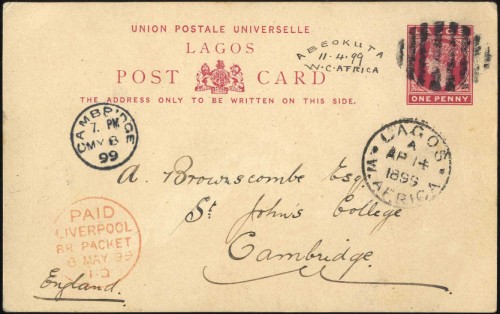 UNION POSTALE UNIVERSELLE
LAGOS
POST CARD
THE ADDRESS ONLY TO BE WRITTEN ON THIS SIDE.
ABEOKUTA
11-4-99
W.C. AFRICA
LAGOS
ONE PENNY
CAMBRIDGE
7. PM
MY 8
99
LAGOS
A
AP 14
1899
W. AFRICA
A. Brownscombe Esq.
St John's College
Cambridge.
England.
PAID
LIVERPOOL
BR. PACKET
8 MAY 99